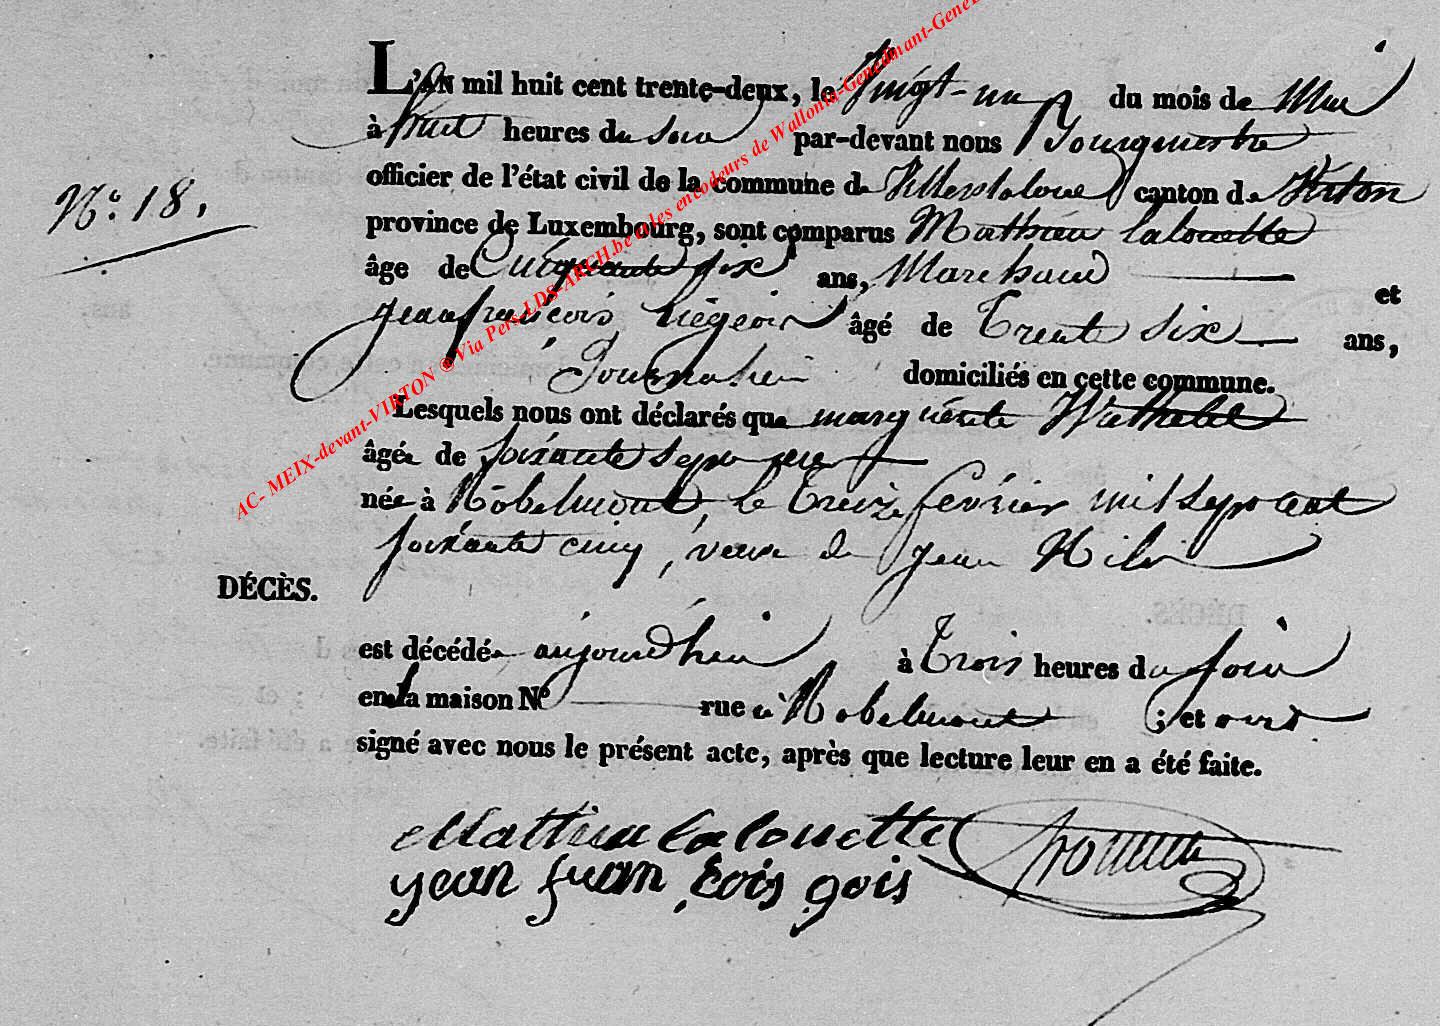 L'AN mil huit cent trente-deux, le Vingt-un du mois de Mai
à huit heures du soir par-devant nous Bourgmestre
officier de l'état civil de la commune de Villerslaloue canton de Virton
N.° 18.
province de Luxembourg, sont comparus Mathieu Lalouette
âge de Cinquante six ans, Marchand et
Jean françois Liégeois âgé de Trente six ans,
Journalier domiciliés en cette commune.
Lesquels nous ont déclarés que marguerite Wathelet
âgée de soixante sept ans
née à Robelmont, le treize février mil sept cent
soixante cinq, veuve de Jean
DÉCÈS.
est décédée aujourdhui à Trois heures du soir
en la maison N° rue à Robelmont ; et ont
signé avec nous le présent acte, après que lecture leur en a été faite.
Mathieu Lalouette
jean fran, cois gois
AC- MEIX-devant-VIRTON © Via Pers-LDS-ARCH.be & les encodeurs de Wallonia-Genealmant-Gene